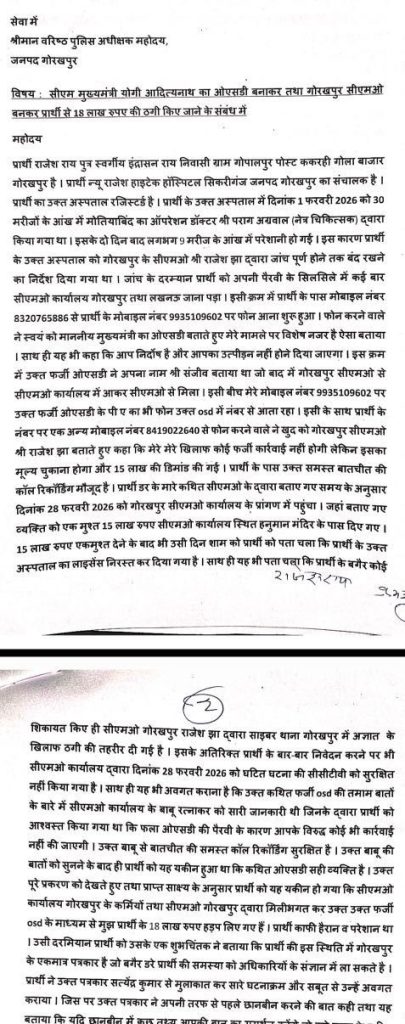 सेवा में
श्रीमान वरिष्ठ पुलिस अधीक्षक महोदय,
जनपद गोरखपुर
विषय : सीएम मुख्यमंत्री योगी आदित्यनाथ का ओएसडी बनाकर तथा गोरखपुर सीएमओ
बनकर प्रार्थी से 18 लाख रुपए की ठगी किए जाने के संबंध में
महोदय
प्रार्थी राजेश राय पुत्र स्वर्गीय इंद्रासन राय निवासी ग्राम गोपालपुर पोस्ट ककरही गोला बाजार
गोरखपुर है । प्रार्थी न्यू राजेश हाइटेक हॉस्पिटल सिकरीगंज जनपद गोरखपुर का संचालक है ।
प्रार्थी का उक्त अस्पताल रजिस्टर्ड है । प्रार्थी के उक्त अस्पताल में दिनांक 1 फरवरी 2026 को 30
मरीजों के आंख में मोतियाबिंद का ऑपरेशन डॉक्टर श्री पराग अग्रवाल (नेत्र चिकित्सक) द्वारा
किया गया था । इसके दो दिन बाद लगभग 9 मरीज के आंख में परेशानी हो गई । इस कारण प्रार्थी
के उक्त अस्पताल को गोरखपुर के सीएमओ श्री राजेश झा द्वारा जांच पूर्ण होने तक बंद रखने
का निर्देश दिया गया था । जांच के दरम्यान प्रार्थी को अपनी पैरवी के सिलसिले में कई बार
सीएमओ कार्यालय गोरखपुर तथा लखनऊ जाना पड़ा । इसी क्रम में प्रार्थी के पास मोबाइल नंबर
8320765886 से प्रार्थी के मोबाइल नंबर 9935109602 पर फोन आना शुरू हुआ । फोन करने वाले
ने स्वयं को माननीय मुख्यमंत्री का ओएसडी बताते हुए मेरे मामले पर विशेष नजर है ऐसा बताया
। साथ ही यह भी कहा कि आप निर्दोष है और आपका उत्पीड़न नहीं होने दिया जाएगा । इस क्रम
में उक्त फर्जी ओएसडी ने अपना नाम श्री संजीव बताया था जो बाद में गोरखपुर सीएमओ से
सीएमओ कार्यालय में आकर सीएमओ से मिला । इसी बीच मेरे मोबाइल नंबर 9935109602 पर
उक्त फर्जी ओएसडी के पी ए का भी फोन उक्त osd में नंबर से आता रहा । इसी के साथ प्रार्थी के
नंबर पर एक अन्य मोबाइल नंबर 8419022640 से फोन करने वाले ने खुद को गोरखपुर सीएमओ
श्री राजेश झा बताते हुए कहा कि मेरे मेरे खिलाफ कोई फर्जी कार्रवाई नहीं होगी लेकिन इसका
मूल्य चुकाना होगा और 15 लाख की डिमांड की गई । प्रार्थी के पास उक्त समस्त बातचीत की
कॉल रिकॉर्डिंग मौजूद है । प्रार्थी डर के मारे कथित सीएमओ के द्वारा बताए गए समय के अनुसार
दिनांक 28 फरवरी 2026 को गोरखपुर सीएमओ कार्यालय के प्रांगण में पहुंचा । जहां बताए गए
व्यक्ति को एक मुश्त 15 लाख रुपए सीएमओ कार्यालय स्थित हनुमान मंदिर के पास दिए गए ।
15 लाख रुपए एकमुश्त देने के बाद भी उसी दिन शाम को प्रार्थी को पता चला कि प्रार्थी के उक्त
अस्पताल का लाइसेंस निरस्त कर दिया गया है । साथ ही यह भी पता चला कि प्रार्थी के बगैर कोई
2
शिकायत किए ही सीएमओ गोरखपुर राजेश झा द्वारा साइबर थाना गोरखपुर में अज्ञात के
खिलाफ ठगी की तहरीर दी गई है । इसके अतिरिक्त प्रार्थी के बार-बार निवेदन करने पर भी
सीएमओ कार्यालय द्वारा दिनांक 28 फरवरी 2026 को घटित घटना की सीसीटीवी को सुरक्षित
नहीं किया गया है । साथ ही यह भी अवगत कराना है कि उक्त कथित फर्जी osd की तमाम बातों
के बारे में सीएमओ कार्यालय के बाबू रत्नाकर को सारी जानकारी थी जिनके द्वारा प्रार्थी को
आश्वस्त किया गया था कि फला ओएसडी की पैरवी के कारण आपके विरुद्ध कोई भी कार्रवाई
नहीं की जाएगी । उक्त बाबू से बातचीत की समस्त कॉल रिकॉर्डिंग सुरक्षित है । उक्त बाबू की
बातों को सुनने के बाद ही प्रार्थी को यह यकीन हुआ था कि कथित ओएसडी सही व्यक्ति है । उक्त
पूरे प्रकरण को देखते हुए तथा प्राप्त साक्ष्य के अनुसार प्रार्थी को यह यकीन हो गया कि सीएमओ
कार्यालय गोरखपुर के कर्मियों तथा सीएमओ गोरखपुर द्वारा मिलीभगत कर उक्त उक्त फर्जी
osd के माध्यम से मुझ प्रार्थी के 18 लाख रुपए हड़प लिए गए हैं । प्रार्थी काफी हैरान व परेशान था
। उसी दरमियान प्रार्थी को उसके एक शुभचिंतक ने बताया कि प्रार्थी की इस स्थिति में गोरखपुर
के एकमात्र पत्रकार है जो बगैर डरे प्रार्थी की समस्या को अधिकारियों के संज्ञान में ला सकते है ।
प्रार्थी ने उक्त पत्रकार सत्येंद्र कुमार से मुलाकात कर सारे घटनाक्रम और सबूत से उन्हें अवगत
कराया । जिस पर उक्त पत्रकार ने अपनी तरफ से पहले छानबीन करने की बात कही तथा यह
बताया कि यदि छानबीन में कुछ तथ्य आपकी बात का समर्थन